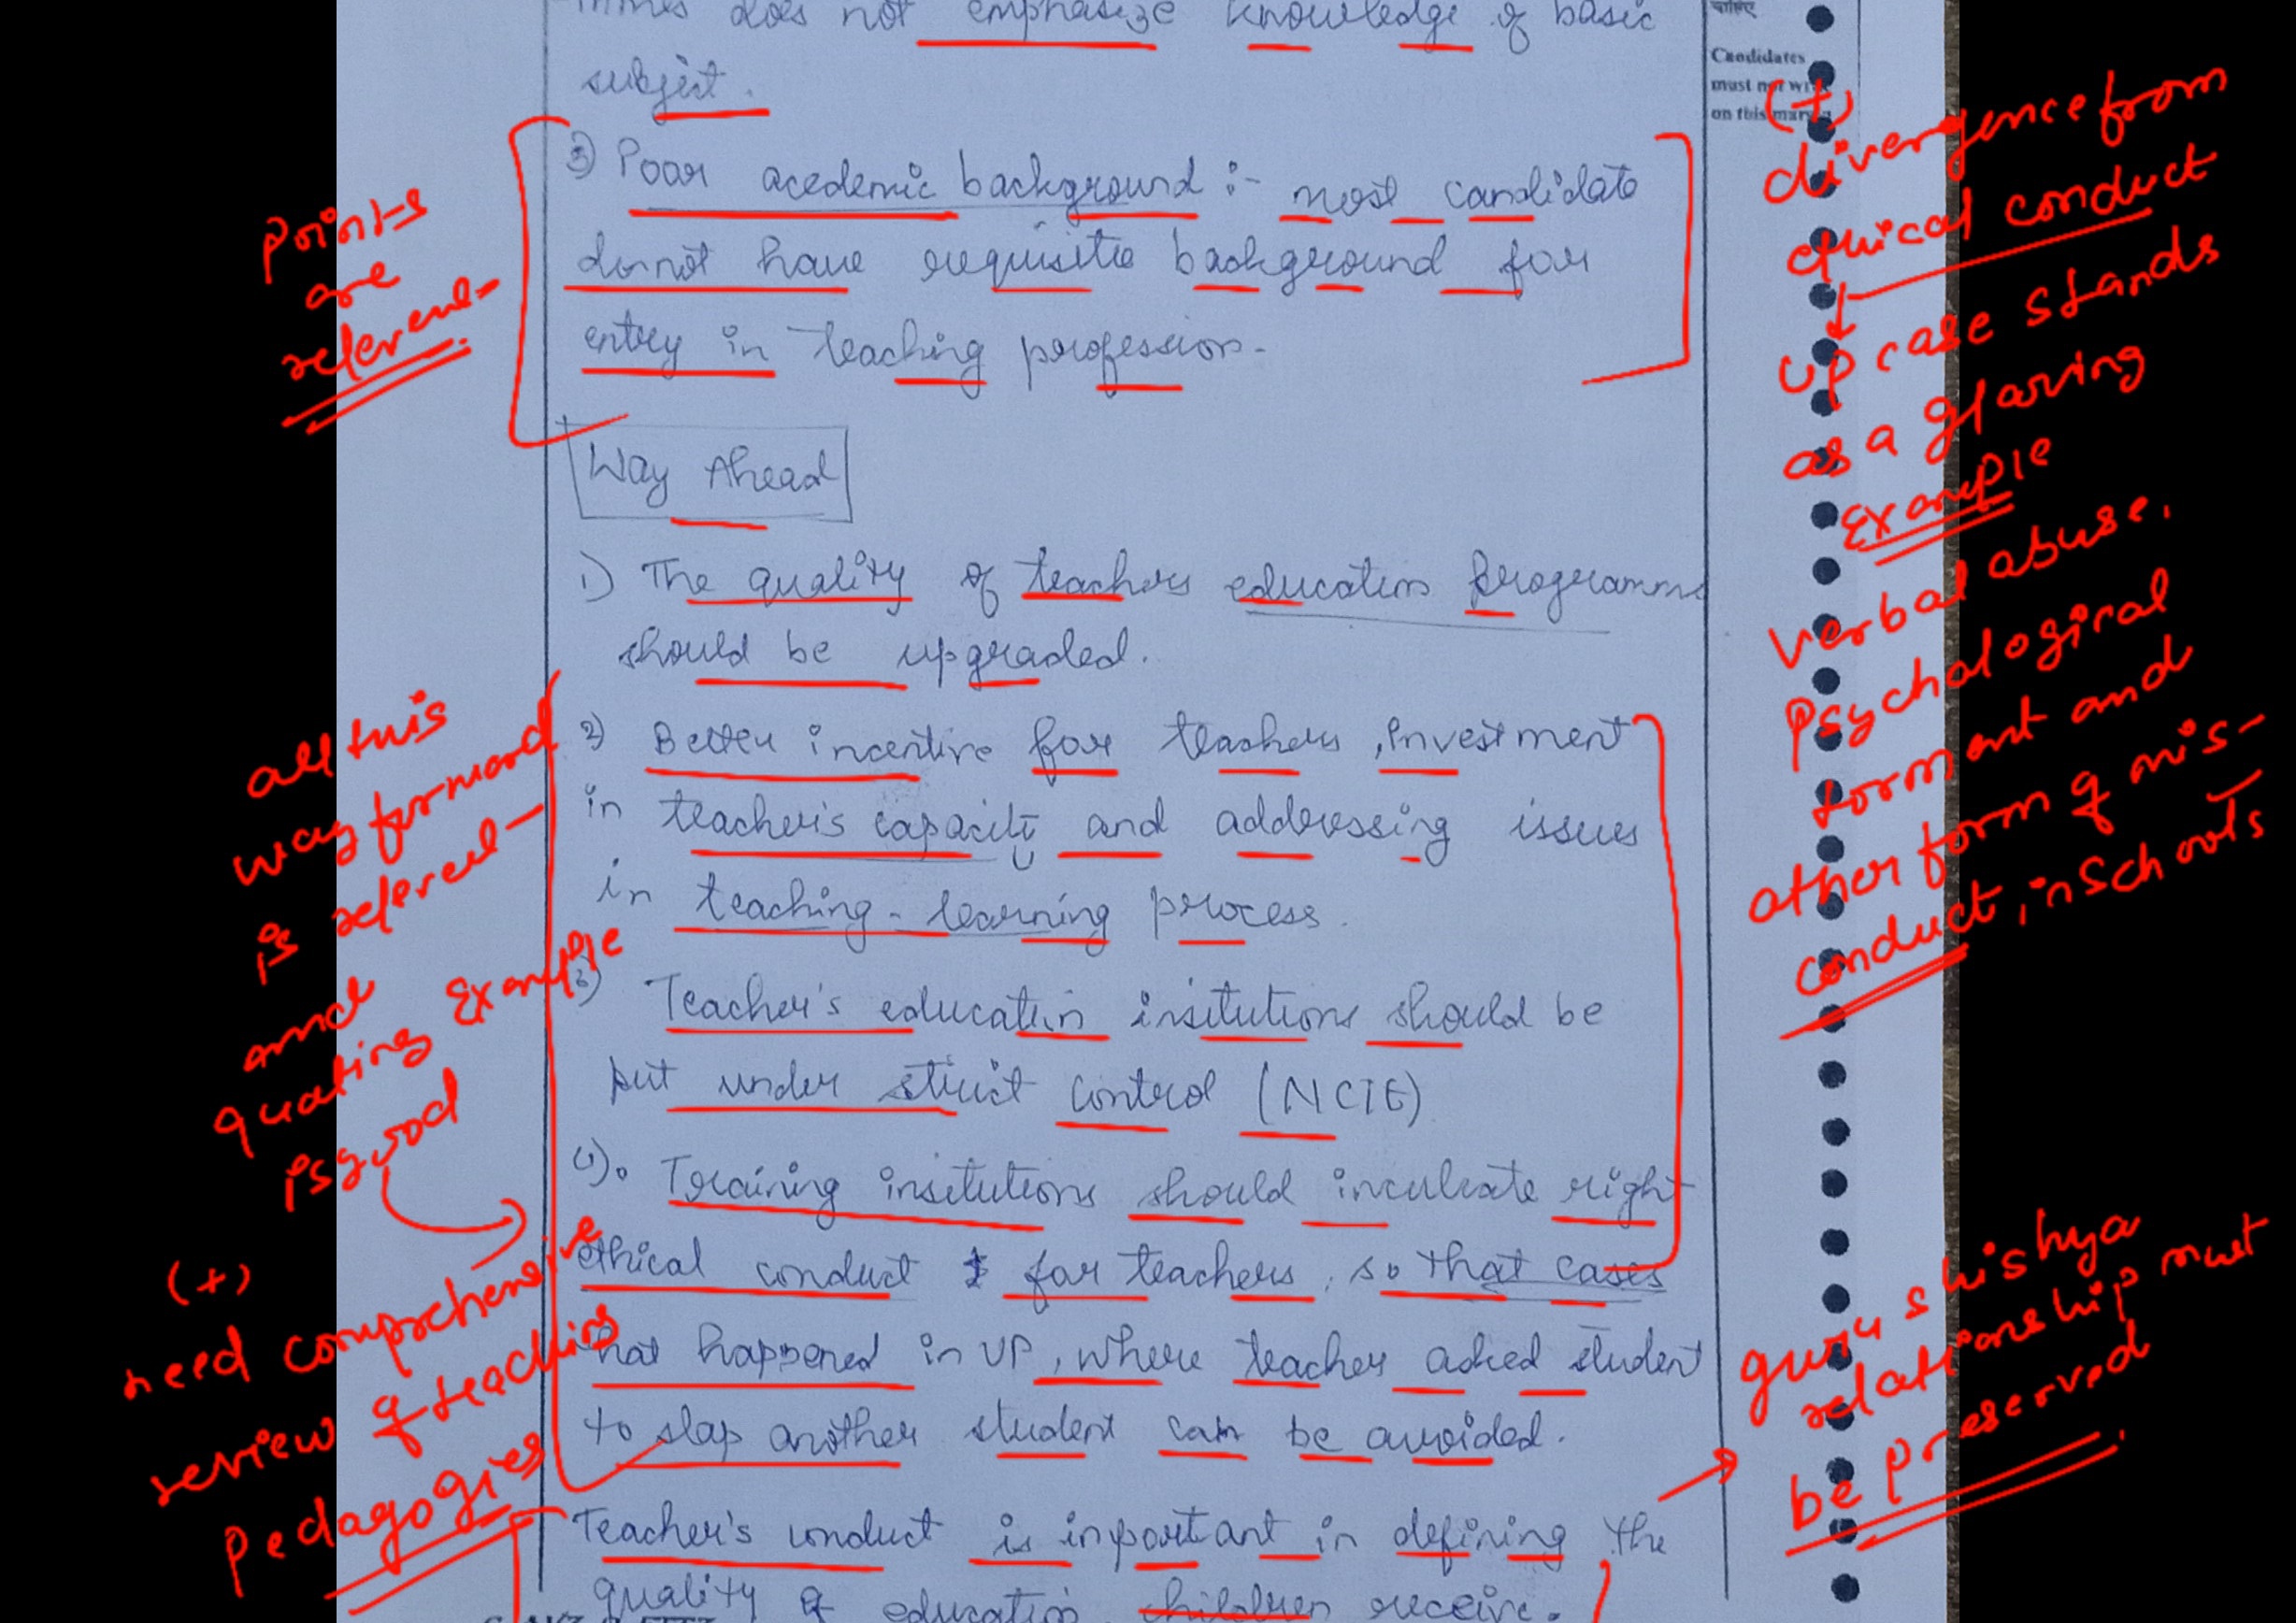 does not emphasize knowledge of basic
subject.
3) Poor acedemic background :- most candidate
donot have requisite background for
entry in teaching profession.
Way Ahead
1) The quality of teachers education Programme
should be upgraded.
2) Better incentive for teachers, Investment
in teacher's capacity and addressing issues
in teaching-learning process.
3) Teacher's education insitutions should be
put under strict control (NCTE)
(4). Training insitutions should inculcate right
ethical conduct for teachers, so that cases
that happened in UP, where teacher asked student
to slap another student can be avoided.
Teacher's conduct is important in defining the
quality of education children receive.
Points
are
relevent
all this
way forward
is relevent
and
quoting Example
is good
(+)
need comprehensive
review of teaching
Pedagogies
चाहिए
Candidates
must not write
on this margin
(+)
divergence from
ethical conduct
↓
UP case stands
as a glaring
Example
verbal abuse,
Psychological
torment and
other form of mis-
conduct, in schools
guru shishya
relationship must
be preserved